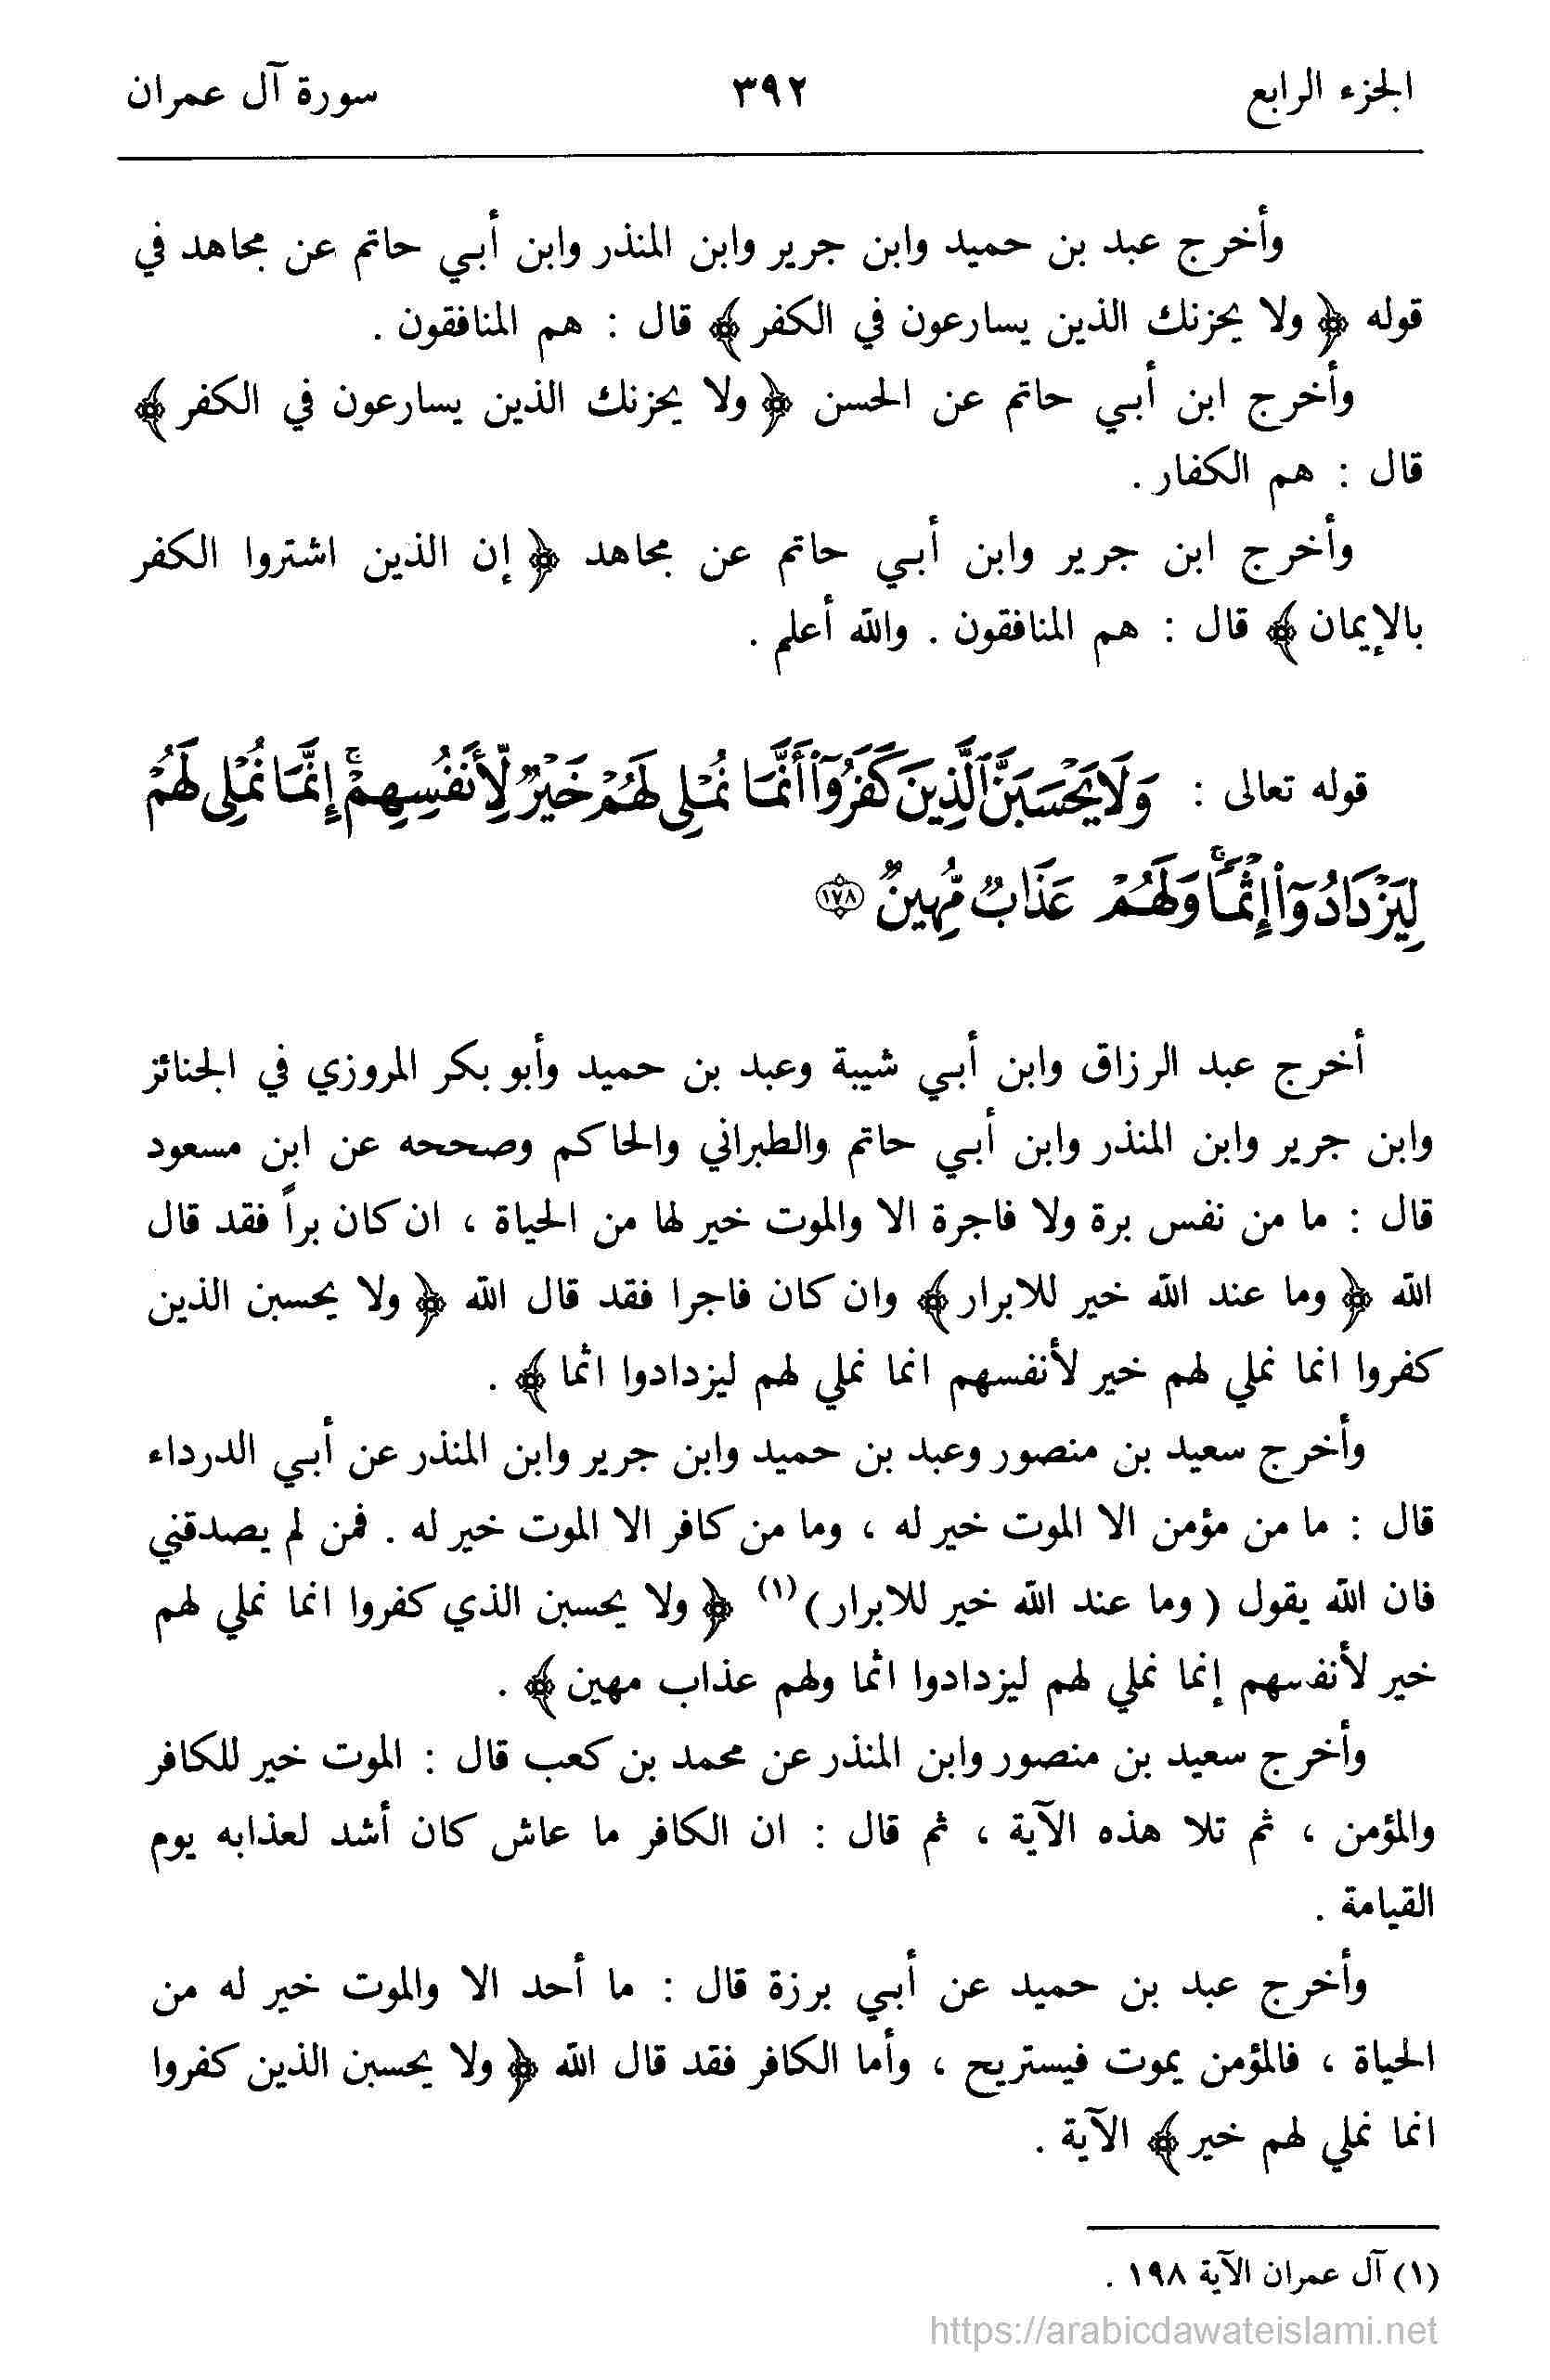 الجزء الرابع ٣٩٢ سورة آل عمران
وأخرج عبد بن حميد وابن جرير وابن المنذر وابن أبي حاتم عن مجاهد في
قوله ﴿ ولا يحزنك الذين يسارعون في الكفر ﴾ قال : هم المنافقون .
وأخرج ابن أبي حاتم عن الحسن ﴿ ولا يحزنك الذين يسارعون في الكفر ﴾
قال : هم الكفار .
وأخرج ابن جرير وابن أبي حاتم عن مجاهد ﴿ إن الذين اشتروا الكفر
بالإيمان ﴾ قال : هم المنافقون . والله أعلم .
قوله تعالى : وَلَا يَحْسَبَنَّ ٱلَّذِينَ كَفَرُوٓا۟ أَنَّمَا نُمْلِى لَهُمْ خَيْرٌ لِّأَنفُسِهِمْ ۚ إِنَّمَا نُمْلِى لَهُمْ
لِيَزْدَادُوٓا۟ إِثْمًا ۚ وَلَهُمْ عَذَابٌ مُّهِينٌ ١٧٨
أخرج عبد الرزاق وابن أبي شيبة وعبد بن حميد وأبو بكر المروزي في الجنائز
وابن جرير وابن المنذر وابن أبي حاتم والطبراني والحاكم وصححه عن ابن مسعود
قال : ما من نفس برة ولا فاجرة الا والموت خير لها من الحياة ، ان كان براً فقد قال
الله ﴿ وما عند الله خير للابرار ﴾ وان كان فاجرا فقد قال الله ﴿ ولا يحسبن الذين
كفروا انما نملي لهم خير لأنفسهم انما نملي لهم ليزدادوا اثما ﴾ .
وأخرج سعيد بن منصور وعبد بن حميد وابن جرير وابن المنذر عن أبي الدرداء
قال : ما من مؤمن الا الموت خير له ، وما من كافر الا الموت خير له . فمن لم يصدقني
فان الله يقول ( وما عند الله خير للابرار )(١) ﴿ ولا يحسبن الذي كفروا انما نملي لهم
خير لأنفسهم إنما نملي لهم ليزدادوا اثما ولهم عذاب مهين ﴾ .
وأخرج سعيد بن منصور وابن المنذر عن محمد بن كعب قال : الموت خير للكافر
والمؤمن ، ثم تلا هذه الآية ، ثم قال : ان الكافر ما عاش كان أشد لعذابه يوم
القيامة .
وأخرج عبد بن حميد عن أبي برزة قال : ما أحد الا والموت خير له من
الحياة ، فالمؤمن يموت فيستريح ، وأما الكافر فقد قال الله ﴿ ولا يحسبن الذين كفروا
انما نملي لهم خير ﴾ الآية .
(١) آل عمران الآية ١٩٨ .
https://arabicdawateislami.net